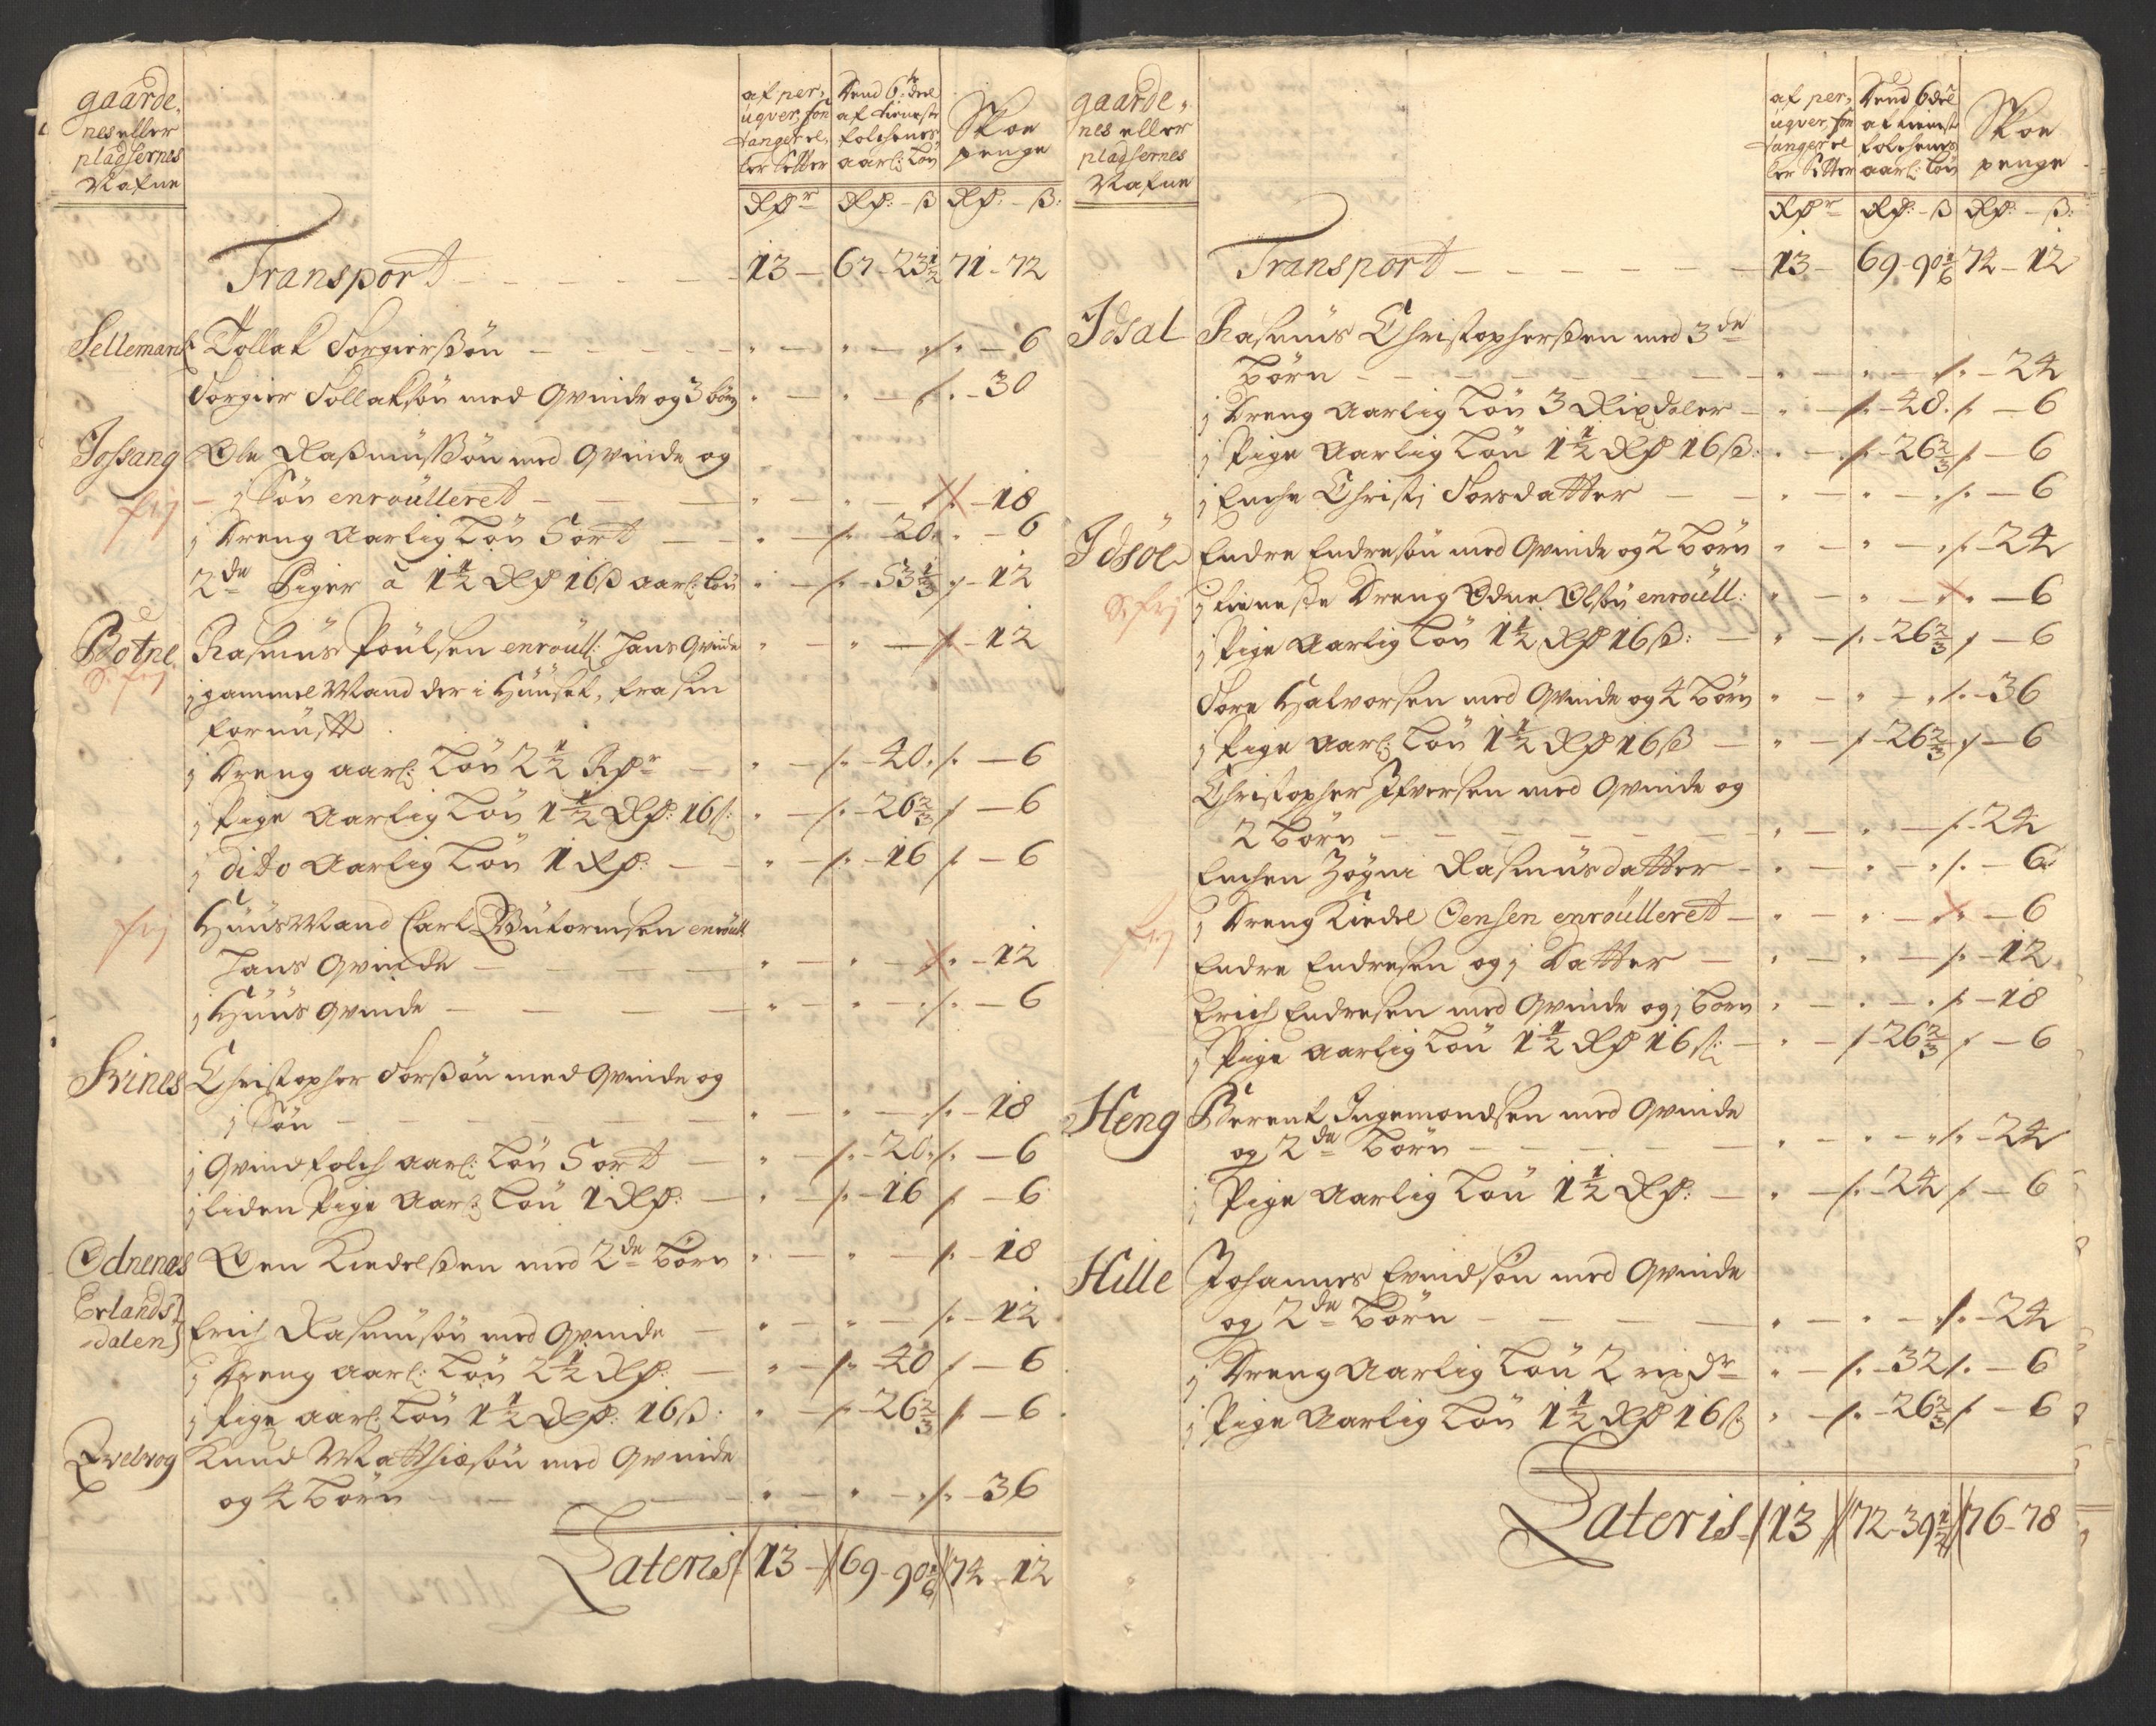 gaarde,
nes eller
pladsernes
Nafne
af per,
uqver, fon
tanger el,
ler Setter
Send 6te deel
af tieneste
folchenes
aarl: Løn
Skoe
penge
Rdr Rd: - ß Rd: - ß:
Transport - - - - - 13 - 67 - 23½ 71 - 72
Sellemark Tollak Torgierßøn - - - - " - " - /. - 6
Torgier Tollaksøn med Qvinde og 3 børn " - " - /. - 30
Jossang Ole Raßmusßøn med Qvinde og
frj - j Søn enroulleret - - - " - " - /. - 18
j Dreng Aarlig Løn 5 ort - - " - /. - 20 " - 6
2de Piger à 1½ Rd 16 ß aarl: Løn " - /. - 53⅓ /. - 12
Botne Rasmus Poulsen enroull: Hans Qvinde " - " - /. - 12
S. frj j gammel Mand der i Huuset, fra sin
fornuft
j Dreng aarl: Løn 2½ Rdr - " - /. - 40 /. - 6
j Pige Aarlig Løn 1½ Rd: 16 ß: " - /. - 26⅔ / - 6
j dito Aarlig Løn 1 Rd: - - " - /. - 16 /. - 6
frj HuusMand Carl Guttormsen enroull
Hans Qvinde - - - - " - " - /. - 12
j Huus Qvinde - - - - " - " - /. - 6
Svines Christopher Torßøn med Qvinde og
j Søn - - - - - " - " - /. - 18
j Qvindfolch aarl: Løn 5 ort - " - /. - 20 /. - 6
j liden Pige Aarl: Løn 1 Rd: - " - /. - 16 /. - 6
Odnenæs Oen Kiedelßen med 2de Børn " - " - /. - 18
Erlands
-dalen Erich Rasmusøn med Qvinde - " - " - /. - 12
j Dreng aarl: Løn 2½ Rd: - " - /. - 40 / - 6
j Pige aarl: Løn 1½ Rd: 16 ß: " - /. - 26⅔ /. - 6
Qvelvog Knud Matthiæsøn med Qvinde
og 4 Børn - - - " - " - /. - 36
Lateris 13 - 69 - 90⅙ 74 - 12
gaarde,
nes eller
pladsernes
Nafne
af per,
uqver, fon
tanger el
ler Setter
Send 6 deel
af tienest
folchenes
aarl: Løn
Skoe
penge
Rdr Rd: - ß Rd: - ß:
Transport - - - - - - 13 - 69 - 90⅙ 74 - 12
Idsal Rasmus Christopherßen med 3de
Børn - - - - - " - " - /. - 24
j Dreng Aarlig Løn 3 Rixdaler - " - /. - 48 /. - 6
j Pige Aarlig Løn 1½ Rd 16 ß: " - /. - 26⅔ /. - 6
j Enche Christj Torsdatter - - " - " - /. - 6
Idsöe Endre Endresøn med Qvinde og 2 Børn " - " - /. - 24
S. frj j tieneste Dreng Odne Olsøn enroull: " - " - " - 6
j Pige Aarlig Løn 1½ Rd 16 ß: - " - /. - 26⅔ / - 6
Tore Halvorsen med Qvinde og 4 Børn " - " - /. - 36
j Pige Aarl: Løn 1½ Rd 16 ß - " - / - 26⅔ / - 6
Christopher Ifversen med Qvinde og
2 Børn - - - - - " - " - /. - 24
Enchen Rasmusdatter - " - " - /. - 6
frj j Dreng Kiedel Oensen enroulleret - " - " - " - 6
Endre Endresen og j Datter - " - " - /. - 12
Erich Endresen med Qvinde og j Børn " - " - /. - 18
j Pige Aarlig Løn 1½ Rd 16 ß: - " - / - 26⅔ / - 6
Heng Berent Ingemondsen med Qvinde
og 2de Børn - - - - " - " - /. - 24
j Pige Aarlig Løn 1½ Rd: - " - /. - 24 /. - 6
Hille Johannes Evindsøn med Qvinde
og 2de Børn - - - - " - " - /. - 24
j Dreng Aarlig Løn 2 rixdr " - /. - 32 /. - 6
j Pige Aarlig Løn 1½ Rd 16 ß: " - /. - 26⅔ /. - 6
Lateris 13 72 - 39½ 76 - 78